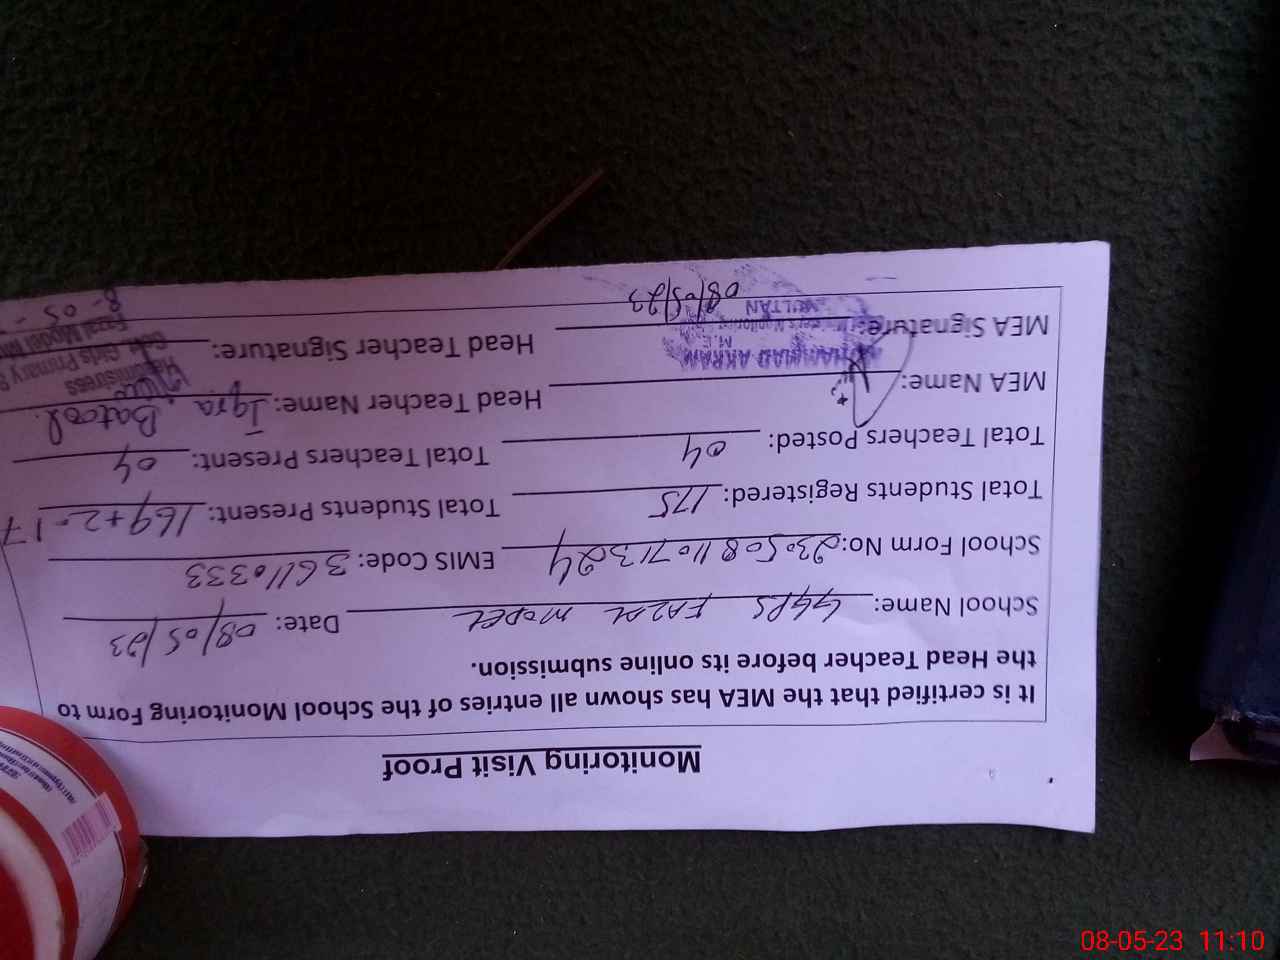 Monitoring Visit Proof
It is certified that the MEA has shown all entries of the School Monitoring Form to
the Head Teacher before its online submission.
School Name: GGPS FAZAL MODEL Date: 08/05/23
School Form No: 23050811071324 EMIS Code: 36110333
Total Students Registered: 175 Total Students Present: 169+2=17
Total Teachers Posted: 04 Total Teachers Present: 04
MEA Name: Head Teacher Name: Iqra Batool.
MEA Signature: Head Teacher Signature:
MUHAMMAD AKRAM
M.E.
MULTAN
08/05/23
Girls Primary S
Fazal Model
8-05-
08-05-23 11:10